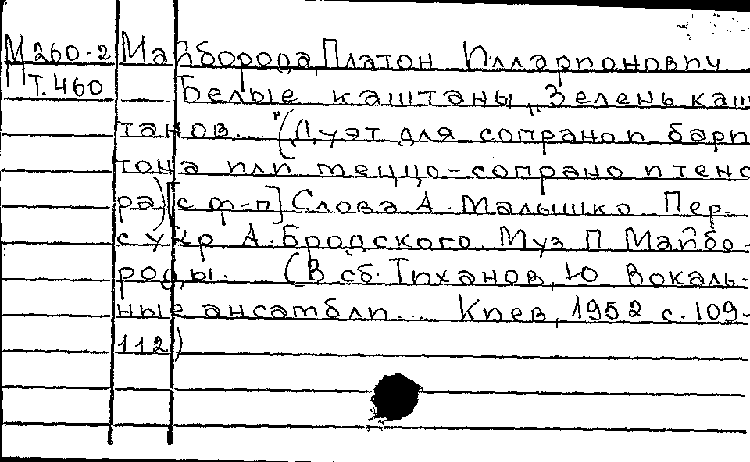 М260-2 Майборода, Платон Илларионович
Пт.460 Белые каштаны. „Зелень каш-
танов..." (Дуэт для сопрано и бари-
тона или меццо-сопрано и тено-
ра) [с ф-п] Слова А. Малышко. Пер.
с укр А. Бродского. Муз П Майбо-
роды. (В сб. Тиханов, Ю Вокаль-
ные ансамбли... Киев, 1952 с. 109-
112)